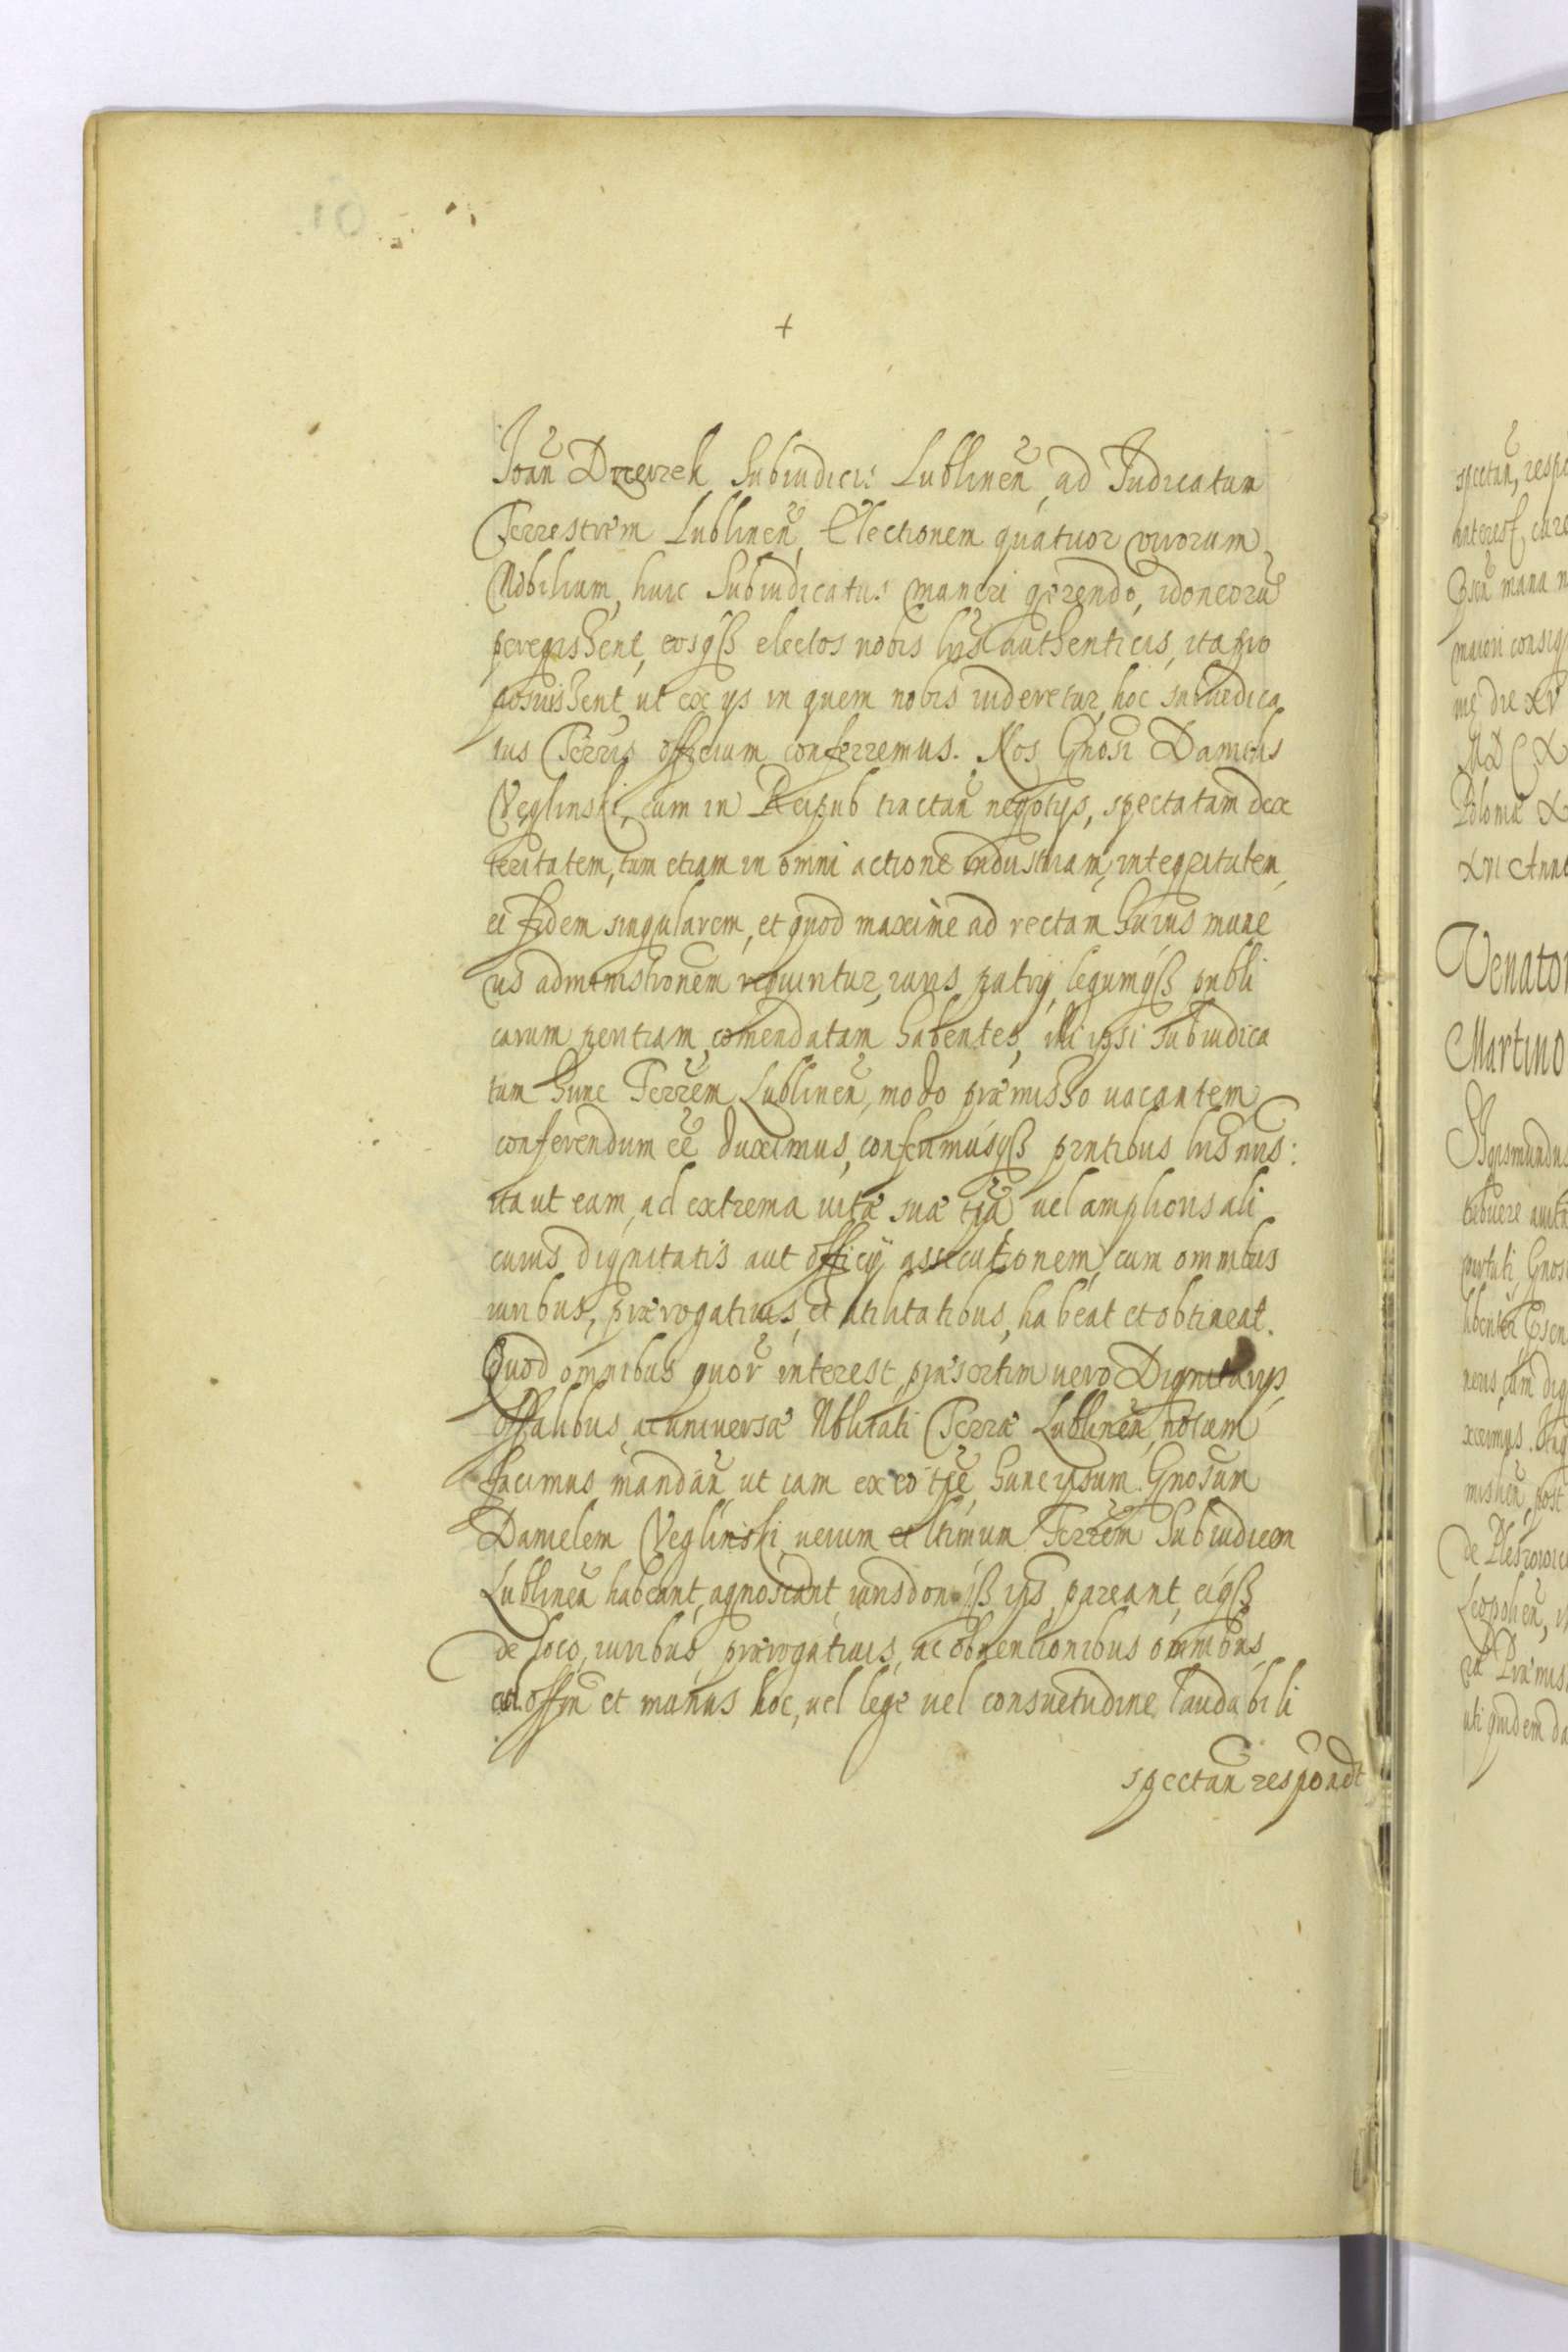 +
Joañ Drzewzek Subiudicis Lublineñ, ad Iudicatum
Terrestrem Lublineñ, Electionem quatuor virorum
Nobilium, huic Subiudicatus muneri gerendo, idoneorũ
peregissent, eosqß electos nobis lrĩs authenticis, ita pro
posuissent, ut ex ijs in quem nobis videretur, hoc subiudica
tus Terris officium conferremus. Nos Gnosi Danielis
Veglinski, cum in Reipub tractañ negotijs, spectatam dex
teritatem, tum etiam in omni actione industriam, integritatem,
et fidem singularem, et quod maxime ad rectam huius mune
ris administronem requiritur, iuris patrij, legumqß publi
carum peritiam, comendatam habentes, illi ipsi Subiudica
tum hunc Terrem Lublineñ, modo præmisso vacantem
conferendum eẽ duximus, conferimusqß pntibus lris nris:
ita ut eam, ad extrema vitæ suæ tpã vel amplioris ali
cuius dignitatis aut officij assecutionem, cum omnibus
iuribus, prærogativis, et utilitatibus, habeat et obtineat.
Quod omnibus quor̃ interest, præsertim vero Dignitarijs,
offialibus, ac universæ Nblitati Terræ Lublineñ, notum
facimus, mandañ ut iam ex eo tpẽ, hunc ipsum Gnosum
Danielem Veglinski, verum et ltimum Terrem Subiudicem
Lublineñ habeant, agnoscant, iurisdoniqß ipsi pareant, eiqß
de loco, iuribus, prærogativis, ac obventionibus omnibus,
ad offm et munus hoc, vel lege vel consuetudine laudabili
spectañ respondt

spectañ, respo
interest, cura
Psen manu n
maiori consig
me die XV
MDC X
Poloniæ X
XVI Anno
Venator
Martino
Sigismundus
tribuere
Gnosi
libenter Psen
neris, cum dig
ximus. Itaq
missñ, post
de Pleszowic
Leopoliẽñ, i
ra Præmis
uti quidem da